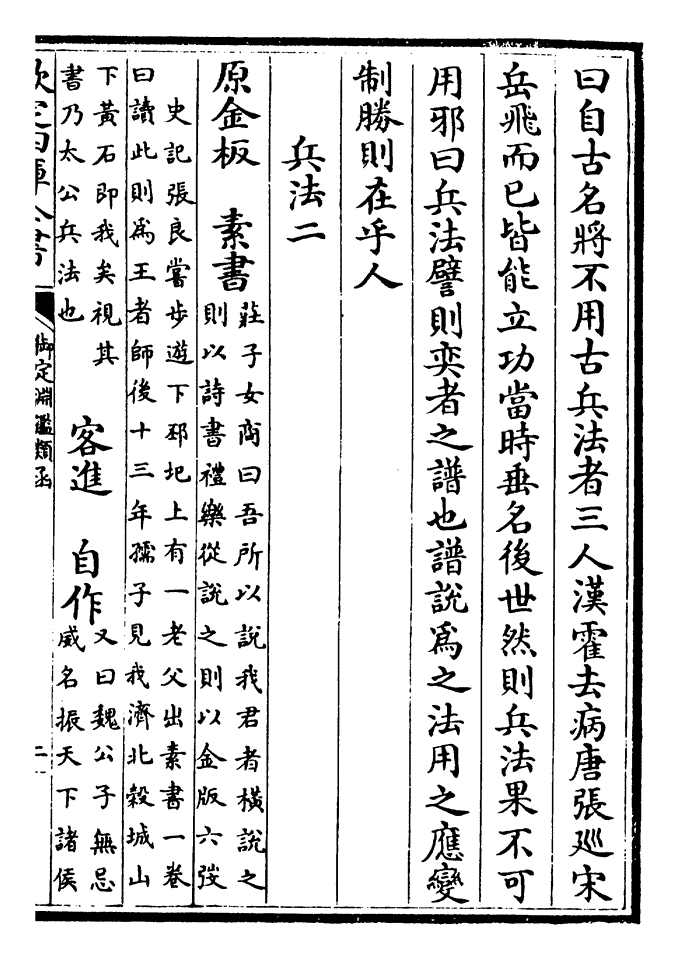 曰自古名將不用古兵法者三人漢霍去病唐張廵宋
岳飛而已皆能立功當時垂名後世然則兵法果不可
用邪曰兵法譬則奕者之譜也譜說為之法用之應變
制勝則在乎人
兵法二
原金板 素書
莊子女商曰吾所以說我君者橫說之
則以詩書禮樂從說之則以金版六弢
史記張良嘗步遊下邳圯上有一老父出素書一卷
曰讀此則為王者師後十三年孺子見我濟北穀城山
下黃石即我矣視其
書乃太公兵法也
客進 自作
又曰魏公子無忌
威名振天下諸侯
欽定四庫全書
御定淵鑑類函